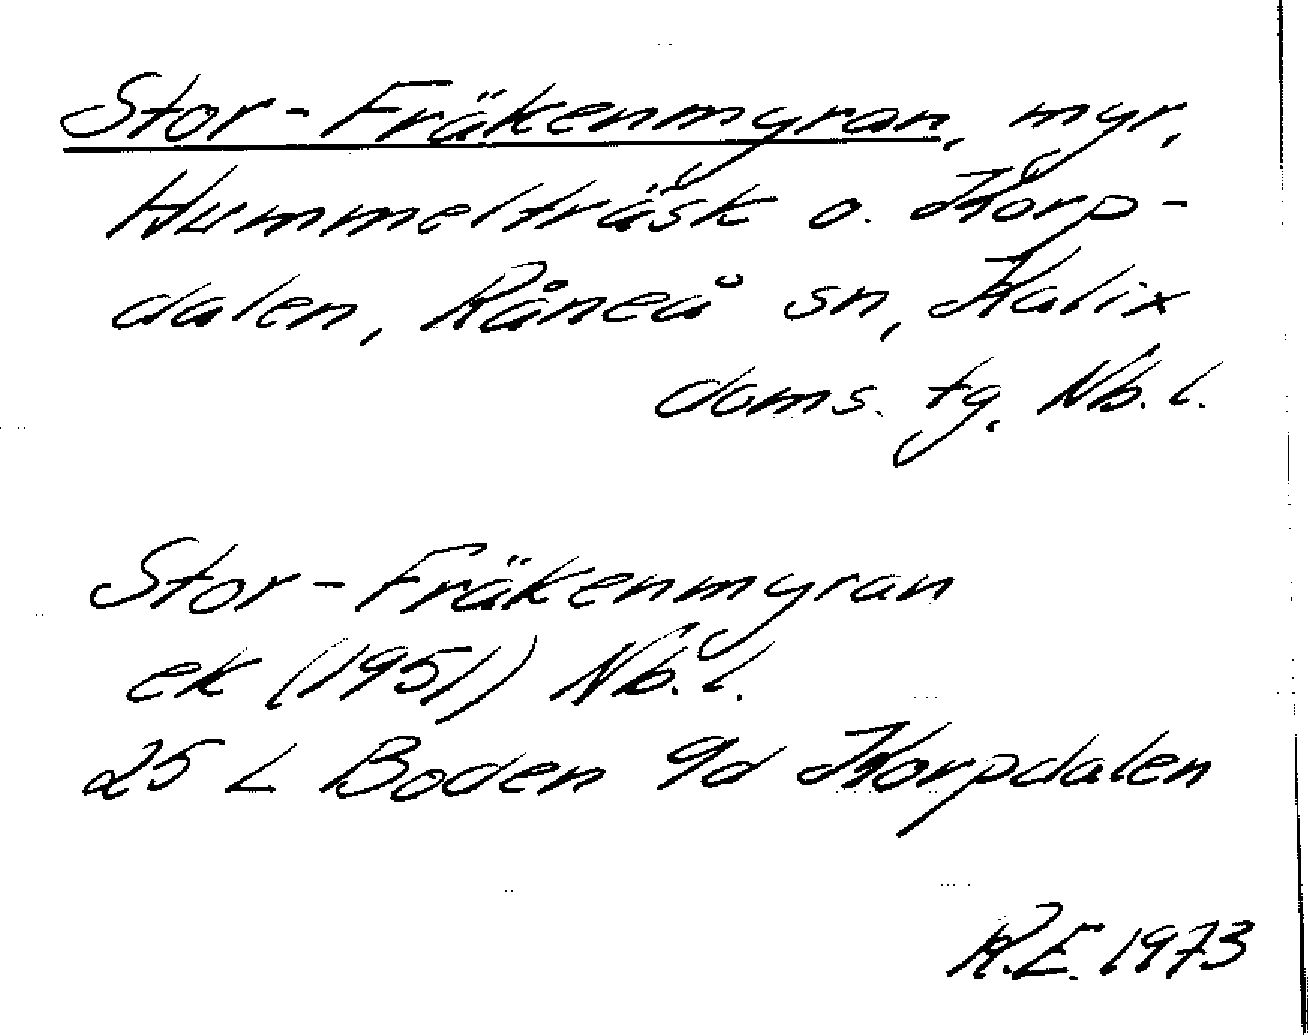 Stor-Fräkenmyran, myr,
Hummelträsk o. Korp-
dalen, Råneå sn, Kalix
doms. tg, Nb. l.
Stor-Fräkenmyran
ek (1951) Nb. l.
25 L Boden 9d Korpdalen
R.E. 1973